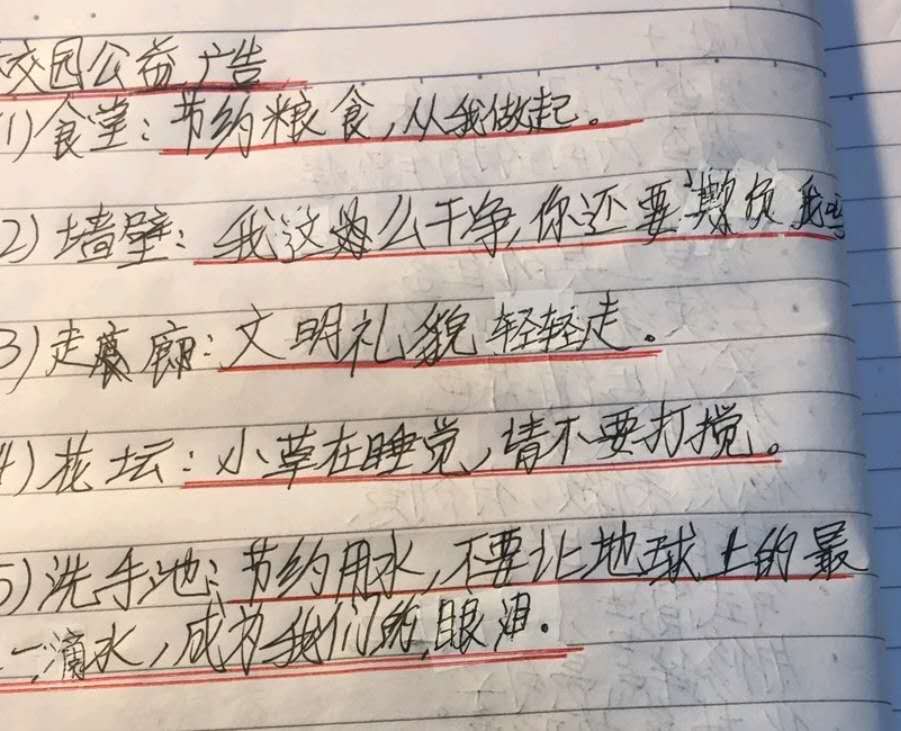 校园公益广告
(1)食堂:节约粮食,从我做起。
(2)墙壁:我这么干净,你还要欺负我吗
(3)走廊:文明礼貌轻轻走.
(4)花坛:小草在睡觉,请不要打搅。
(5)洗手池:节约用水,不要让地球上的最
一滴水,成为我们的眼泪.